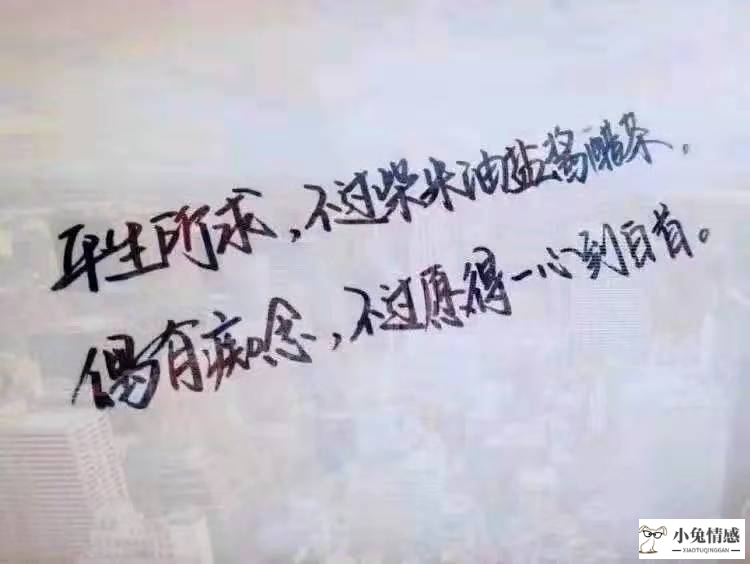 平生所求，不过柴米油盐酱醋茶，
偶有痴念，不过愿得一心到白首。
小兔情感
XIAOTUQINGGAN